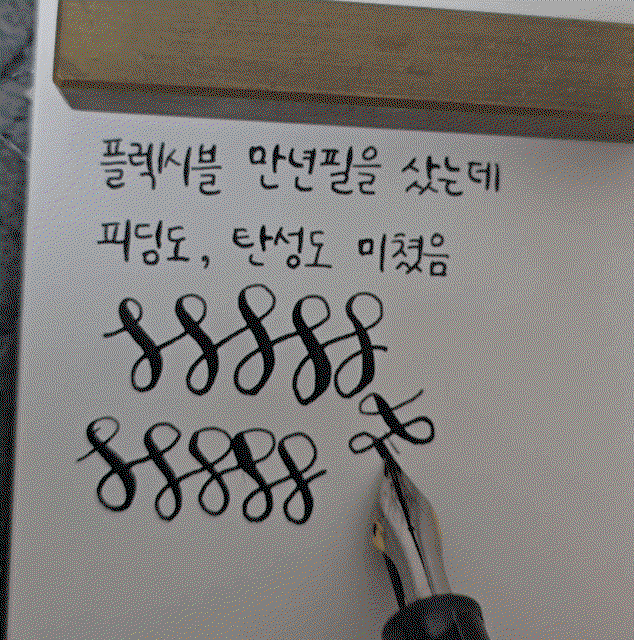 플렉시블 만년필을 샀는데
피딩도, 탄성도 미쳤음